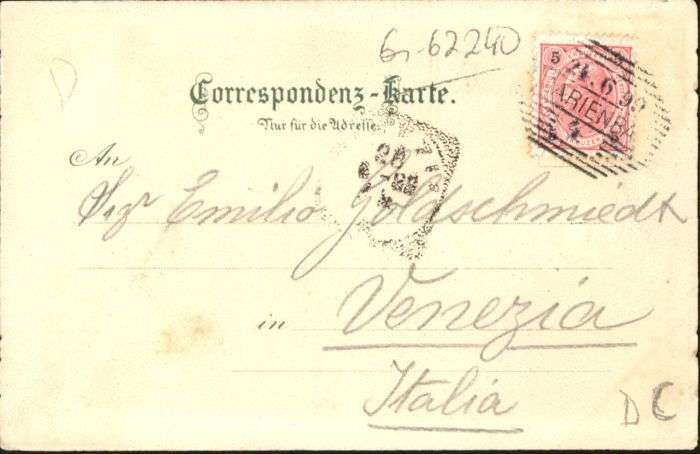 D
6-62240
5
Correspondenz-Karte.
Nur für die Adresse.
24.6.99
ARIENB
An
Sigr Emilio Goldschmiedt
in Venezia
Italia
D C